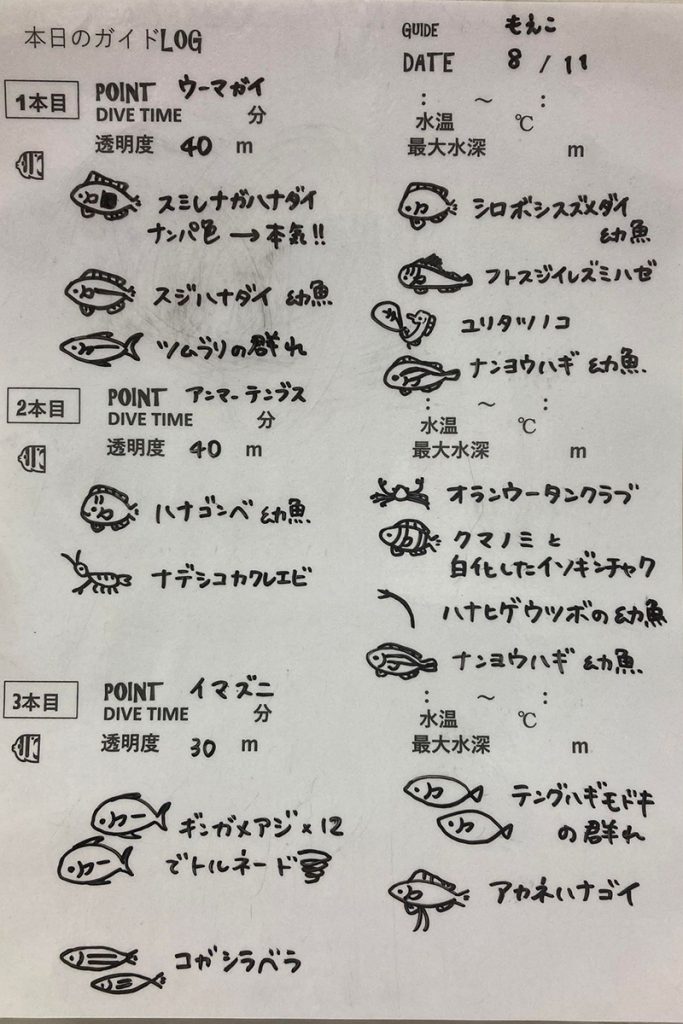 本日のガイドLOG
GUIDE もえこ
DATE 8 / 11
1本目 POINT ウーマガイ
DIVE TIME 分
透明度 40 m
: ～ :
水温 ℃
最大水深 m
スミレナガハナダイ
ナンパ色 → 本気!!
スジハナダイ 幼魚
ツムブリの群れ
シロボシスズメダイ
幼魚
フトスジイレズミハゼ
ユリタツノコ
ナンヨウハギ 幼魚
2本目 POINT アンマーテンブス
DIVE TIME 分
透明度 40 m
: ～ :
水温 ℃
最大水深 m
ハナゴンベ 幼魚
ナデシコカクレエビ
オランウータンクラブ
クマノミと
白化したイソギンチャク
ハナヒゲウツボの幼魚
ナンヨウハギ 幼魚
3本目 POINT イマズニ
DIVE TIME 分
透明度 30 m
: ～ :
水温 ℃
最大水深 m
ギンガメアジ×12
でトルネード
コガシラベラ
テングハギモドキ
の群れ
アカネハナゴイ